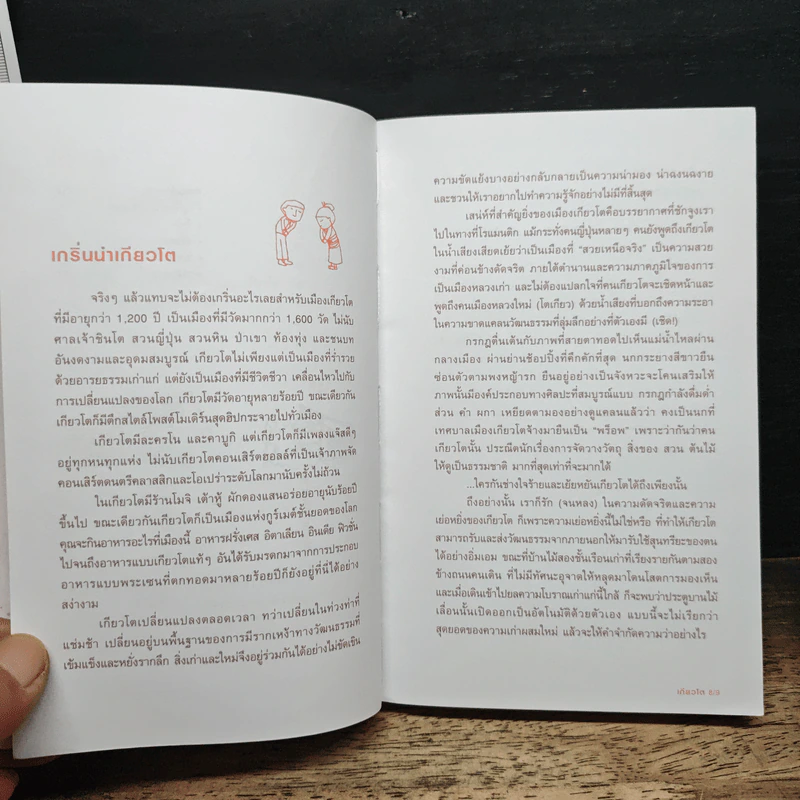 เกริ่นนำเกียวโต
จริงๆ แล้วแทบจะไม่ต้องเกริ่นอะไรเลยสำหรับเมืองเกียวโต
ที่มีอายุกว่า 1,200 ปี เป็นเมืองที่มีวัดมากกว่า 1,600 วัด ไม่นับ
ศาลเจ้าชินโต สวนญี่ปุ่น สวนหิน ป่าเขา ท้องทุ่ง และชนบท
อันงดงามและอุดมสมบูรณ์ เกียวโตไม่เพียงแต่เป็นเมืองที่ร่ำรวย
ด้วยอารยธรรมเก่าแก่ แต่ยังเป็นเมืองที่มีชีวิตชีวา เคลื่อนไหวไปกับ
การเปลี่ยนแปลงของโลก เกียวโตมีวัดอายุหลายร้อยปี ขณะเดียวกัน
เกียวโตก็มีตึกสไตล์โพสต์โมเดิร์นสุดฮิปกระจายไปทั่วเมือง
เกียวโตมีละครโน และคาบูกิ แต่เกียวโตก็มีเพลงแจ๊สดีๆ
อยู่ทุกหนทุกแห่ง ไม่นับเกียวโตคอนเสิร์ตฮอลล์ที่เป็นเจ้าภาพจัด
คอนเสิร์ตดนตรีคลาสสิกและโอเปร่าระดับโลกมานับครั้งไม่ถ้วน
ในเกียวโตมีร้านโมจิ เต้าหู้ ผักดองแสนอร่อยอายุนับร้อยปี
ขึ้นไป ขณะเดียวกันเกียวโตก็เป็นเมืองแห่งกูร์เมต์ชั้นยอดของโลก
คุณจะกินอาหารอะไรที่เมืองนี้ อาหารฝรั่งเศส อิตาเลียน อินเดีย ฟิวชั่น
ไปจนถึงอาหารแบบเกียวโตแท้ๆ อันได้รับมรดกมาจากการประกอบ
อาหารแบบพระเซนที่ตกทอดมาหลายร้อยปีก็ยังอยู่ที่นี่ได้อย่าง
สง่างาม
เกียวโตเปลี่ยนแปลงตลอดเวลา ทว่าเปลี่ยนในท่วงท่าที่
แช่มช้า เปลี่ยนอยู่บนพื้นฐานของการมีรากเหง้าทางวัฒนธรรมที่
เข้มแข็งและหยั่งรากลึก สิ่งเก่าและใหม่จึงอยู่ร่วมกันได้อย่างไม่ขัดเขิน
ความขัดแย้งบางอย่างกลับกลายเป็นความน่ามอง น่าฉงนฉงาย
และชวนให้เราอยากไปทำความรู้จักอย่างไม่มีที่สิ้นสุด
เสน่ห์ที่สำคัญยิ่งของเมืองเกียวโตคือบรรยากาศที่ชักจูงเรา
ไปในทางที่โรแมนติก แม้กระทั่งคนญี่ปุ่นหลายๆ คนยังพูดถึงเกียวโต
ในน้ำเสียงเสียดเย้ยว่าเป็นเมืองที่ “สวยเหนือจริง” เป็นความสวย
งามที่ค่อนข้างดัดจริต ภายใต้ตำนานและความภาคภูมิใจของการ
เป็นเมืองหลวงเก่า และไม่ต้องแปลกใจที่คนเกียวโตจะเชิดหน้าและ
พูดถึงคนเมืองหลวงใหม่ (โตเกียว) ด้วยน้ำเสียงที่บอกถึงความระอา
ในความขาดแคลนวัฒนธรรมที่ลุ่มลึกอย่างที่ตัวเองมี (เชิด!)
กรกฎตื่นเต้นกับภาพที่สายตาทอดไปเห็นแม่น้ำไหลผ่าน
กลางเมือง ผ่านย่านช้อปปิ้งที่คึกคักที่สุด นกกระยางสีขาวยืน
ซ่อนตัวตามพงหญ้ารก ยืนอยู่อย่างเป็นจังหวะจะโคนเสริมให้
ภาพนั้นมีองค์ประกอบทางศิลปะที่สมบูรณ์แบบ กรกฎกำลังดื่มด่ำ
ส่วน คำ ผกา เหยียดตามองอย่างดูแคลนแล้วว่า คงเป็นนกที่
เทศบาลเมืองเกียวโตจ้างมายืนเป็น “พร็อพ” เพราะว่ากันว่าคน
เกียวโตนั้น ประณีตนักเรื่องการจัดวางวัตถุ สิ่งของ สวน ต้นไม้
ให้ดูเป็นธรรมชาติ มากที่สุดเท่าที่จะมากได้
...ใครกันช่างใจร้ายและเย้ยหยันเกียวโตได้ถึงเพียงนั้น
ถึงอย่างนั้น เราก็รัก (จนหลง) ในความดัดจริตและความ
เย่อหยิ่งของเกียวโต ก็เพราะความเย่อหยิ่งนี้ไม่ใช่หรือ ที่ทำให้เกียวโต
สามารถรับและส่งวัฒนธรรมจากภายนอกให้มารับใช้สุนทรียะของตน
ได้อย่างอิ่มเอม ขณะที่บ้านไม้สองชั้นเรือนเก่าที่เรียงรายกันตามสอง
ข้างถนนคนเดิน ที่ไม่มีทัศนะอุจาดให้หลุดมาโดนโสตการมองเห็น
และเมื่อเดินเข้าไปยลความโบราณเก่าแก่นี้ใกล้ ก็จะพบว่าประตูบานไม้
เลื่อนนั้นเปิดออกเป็นอัตโนมัติด้วยตัวเอง แบบนี้จะไม่เรียกว่า
สุดยอดของความเก่าผสมใหม่ แล้วจะให้คำจำกัดความว่าอย่างไร